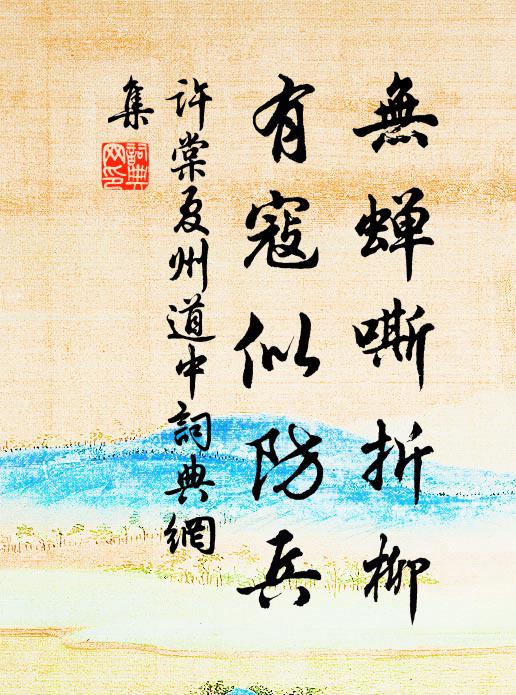 無蝉嘶折柳
有寇似防兵
許棠夏州道中詞典網
集
詞典網印